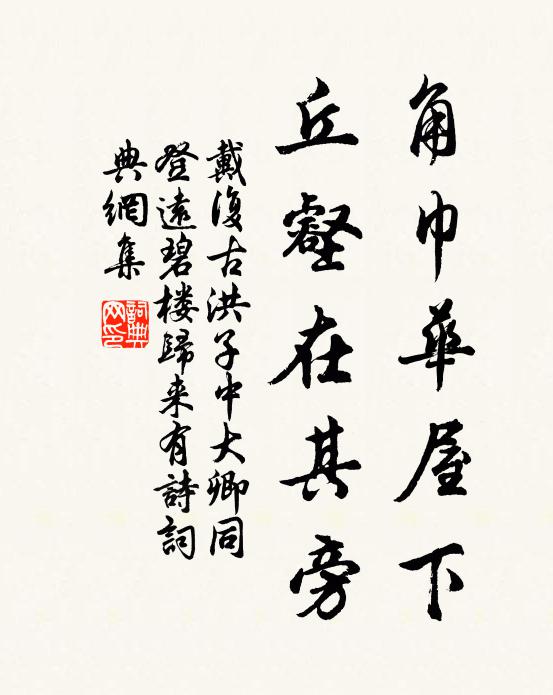 角巾華屋下
丘壑在其旁
戴復古洪子中大卿同
登遠碧楼歸来有詩詞
典網集
詞典网印